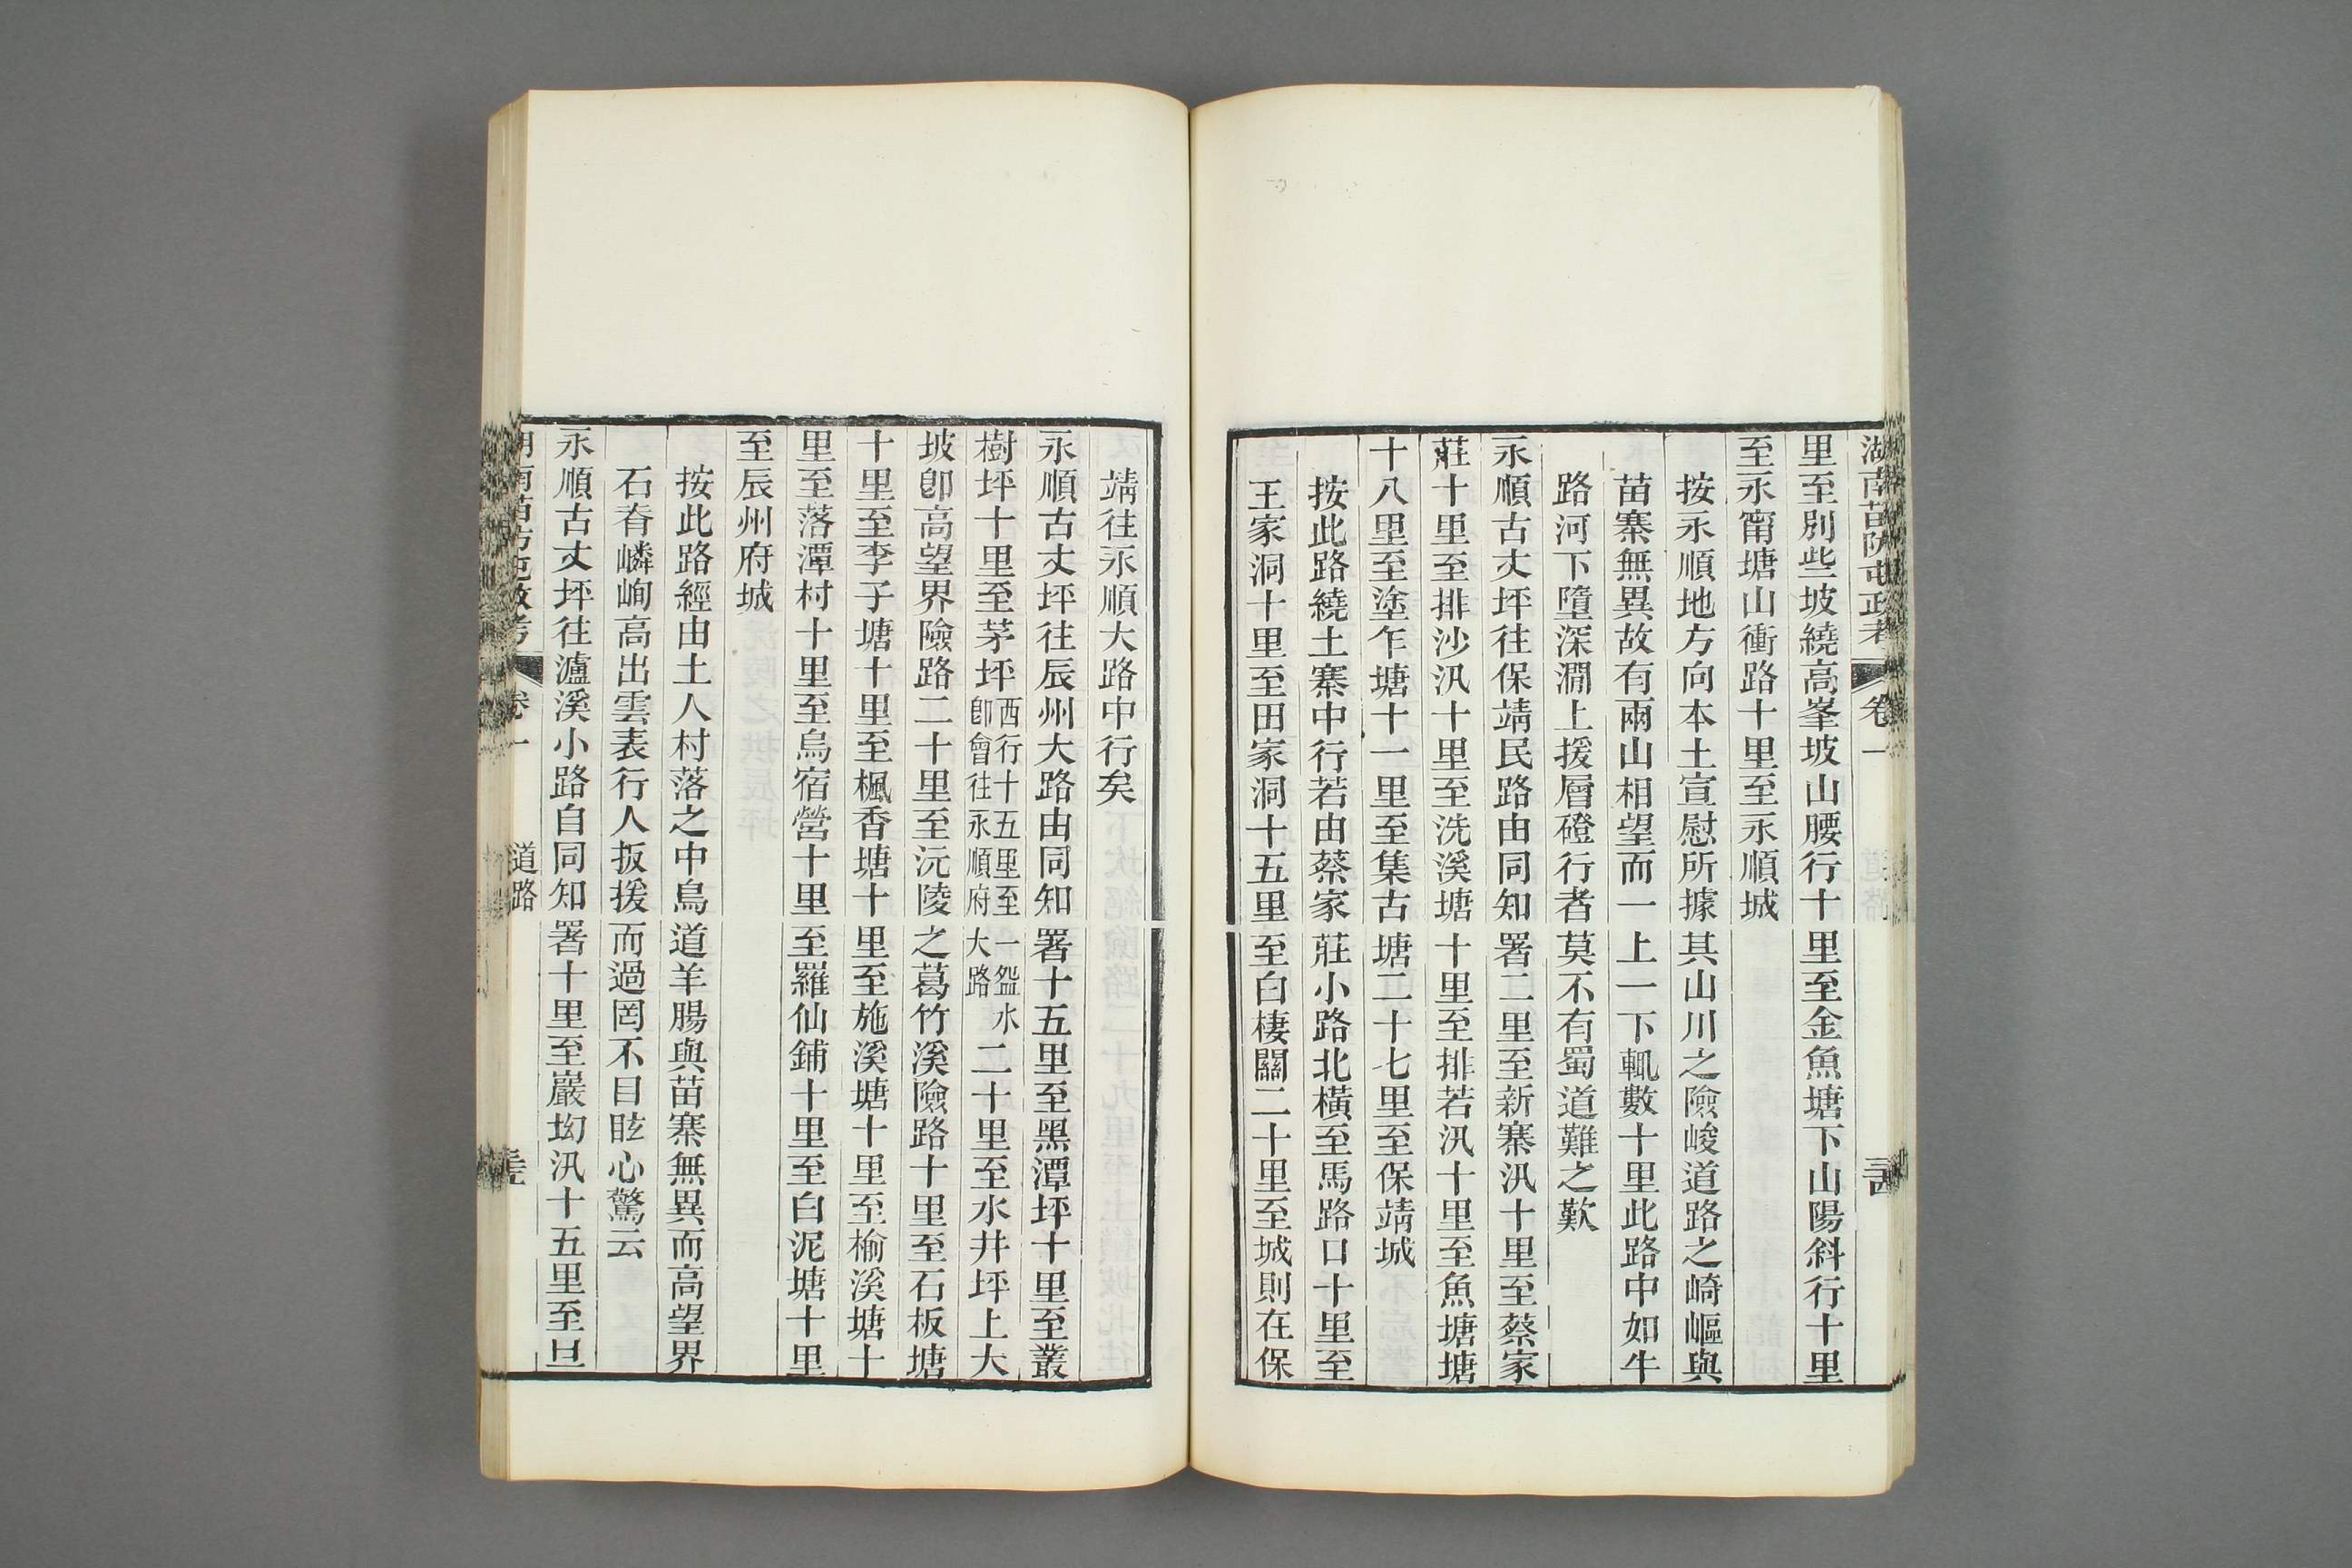 湖南苗防屯政考 卷一 道路
里至別些坡繞高峯坡山腰行十里至金魚塘下山陽斜行十里
至永甯塘山衝路十里至永順城
按永順地方向本土宣慰所據其山川之險峻道路之崎嶇與
苗寨無異故有兩山相望而一上一下輒數十里此路中如牛
路河下墮深澗上援層磴行者莫不有蜀道難之歎
永順古丈坪往保靖民路由同知署二里至新寨汛十里至蔡家
莊十里至排沙汛十里至洗溪塘十里至排若汛十里至魚塘塘
十八里至塗乍塘十一里至集古塘二十七里至保靖城
按此路繞土寨中行若由蔡家莊小路北橫至馬路口十里至
王家洞十里至田家洞十五里至白棲關二十里至城則在保
靖往永順大路中行矣
永順古丈坪往辰州大路由同知署十五里至黑潭坪十里至叢
樹坪十里至茅坪西行十五里至一盌水卽會往永順府大路二十里至水井坪上大
坡卽高望界險路二十里至沅陵之葛竹溪險路十里至石板塘
十里至李子塘十里至楓香塘十里至施溪塘十里至楡溪塘十
里至落潭村十里至烏宿營十里至羅仙鋪十里至白泥塘十里
至辰州府城
按此路經由土人村落之中鳥道羊腸與苗寨無異而高望界
石脊嶙峋高出雲表行人扳援而過罔不目眩心驚云
永順古丈坪往瀘溪小路自同知署十里至巖坳汛十五里至旦
湖南苗防屯政考 卷一 道路